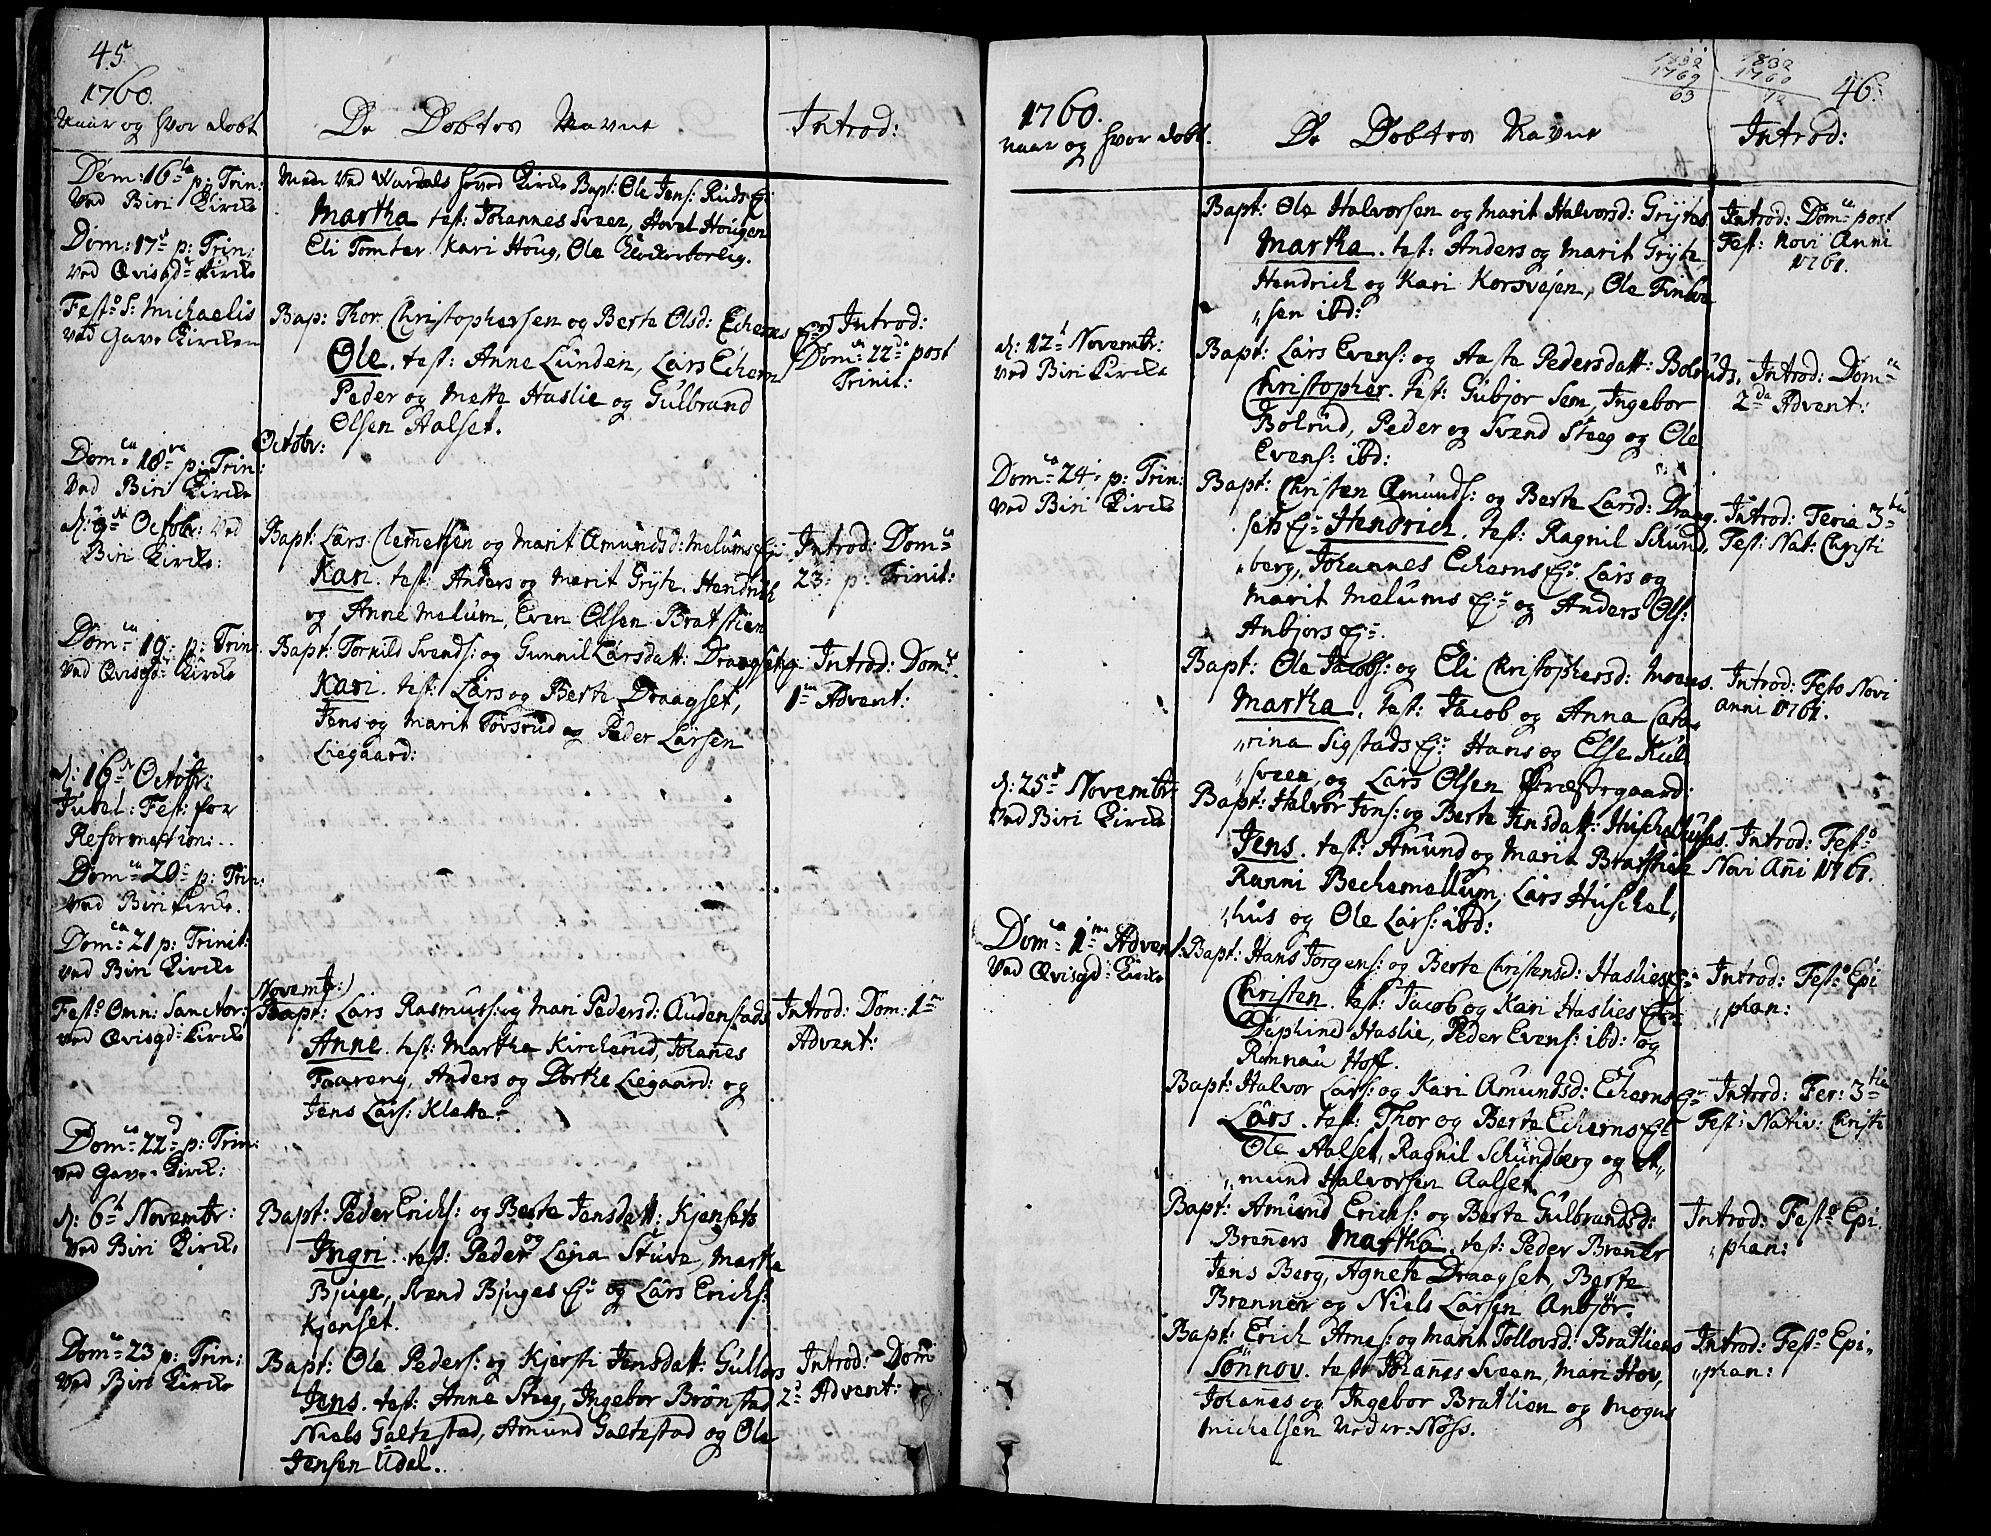 45.
1760.
Naar og hvor døbt
De Døbtes Navne
Introd:
Dom: 16 p: Trin:
Ved Biri Kirke
Men Ved Wardals hoved Kirke Bapt: Ole Jens: Ruds Ej:
Martha test: Johannes Sveen, Hovel Hougen
Eli Tomter Kari Houg, Ole
Dom: 17 p: Trin:
ved Qvisgd: Kirke
Festo S: Michaelis
ved Gave Kirken
Bap: Thor Christophersen og Berte Olsd: Echerns Ej:
Ole. test: Anne Lunden, Lars Echern
Peder og Mette Haslie og Gulbrand
Olsen Aalset.
Introd:
Dom: 22 post
Trinit:
Octobr:
Dom: 18 p: Trin:
Ved Biri Kirke
d: 9 Octobr: Ved
Biri Kirke:
Bapt: Lars Clemetsen og Marit Amundsd: Melums Ej:
Kari. test: Anders og Marit Gryte, Hendrich
og Anne Melum, Even Olsen Bratstien
Introd: Dom:
23: p: Trinit:
Dom: 19: p: Trin:
ved Qvisgd: Kirke
Bapt: Tornild Svends: og Gunnil Larsdatt: Draagset
Kari. test: Lars og Berte Draagset,
Jens og Marit Tovsrud og Peder Larsen
Liegaard:
Introd: Dom:
1 Advent:
d: 16 Octobr:
Jubel: Fest: for
Reformation:
Dom: 20 p: Trin:
ved Biri Kirke.
Dom: 21 p: Trinit:
ved Biri Kirke
Novembr:
Festo Omn: Sanctor:
ved Qvisgd: Kirke
Bapt: Lars Rasmuss: og Mari Pedersd: Audenstads
Anne. test: Martha Kircherud, Johanes
Faareng, Anders og Dorthe Liegaard: og
Jens Lars: Klette
Introd: Dom: 1
Advent:
Dom: 22 p: Trin:
ved Gave Kirk:
d: 6 Novembr:
ved Biri Kirke
Bapt: Peder Erichs: og Berte Jensdatt: Kjensets
Ingri. test: Peder og Lejna Stuve, Martha
Bjuge, Svend Bjuges Ej: og Lars Erichs:
Kjenset.
Dom: 23 p: Trin:
Ved Biri Kirke
Bapt: Ole Peders: og Kjersti Jensdatt: Gullers
Jens. test: Anne Steeg, Ingebor Brønstad
Niels Galtestad, Amund Galtestad og Ole
Jensen Udal.
Introd: Dom
2 Advent:
1832
1769
63
1832
1760
72
46.
1760.
Naar og hvor døbt.
De Døbtes Navne
Introd:
Bapt: Ole Halvorsen og Marit Halvorsd: Grytes
Martha. test: Anders og Marit Gryte
Hendrich og Kari Korsvejen, Ole
sen ibd:
Introd: Dom: post
Fest: Novi Anni
1761.
d: 12 Novembr:
ved Biri Kirke
Bapt: Lars Evens: og Aaste Pedersdatt: Bolruds,
Christopher. test: Gubjor Sem, Ingebor
Bolrud, Peder og Svend Steeg og Ole
Evens: ibd:
Introd: Dom:
2 Advent:
Dom: 24 p: Trin:
ved Biri Kirke
Bapt: Christen Amunds: og Berte Larsd: Draag,
sets Ej: Hendrich. test: Ragnil Schund,
berg, Johannes Echerns Ej: Lars og
Marit Melums Ej: og Anders Ols:
Anbjors Ej:
Introd: Feria 3
Fest: Nat: Christi
Bapt: Ole Jacobs: og Eli Christophersd: Moens.
Martha. test: Jacob og Anna Catha
rina Sigstads Ej: Hans og Else Kul
sveen og Lars Olsen Præstegaard:
Introd: Festo Novi
anni 1761.
d: 25 Novembr:
Ved Biri Kirke
Bapt: Halvor Jons: og Berte Jensdatt: Huschelhuses.
Jens. test: Amund og Marit Bratstien
Ranni Bechemellum, Lars Huschel,
hus og Ole Lars: ibd:
Introd: Festo
Novi Ani 1761.
Dom: 1 Advent:
ved Qvisgd: Kirke
Bapt: Hans Jorgens: og Berte Christensd: Haslies Ej:
Christen. test: Jacob og Kari Haslies Ej:
Haslie, Peder Evens: ibd: og
Rønnau Hoff.
Introd: Festo Epi
phan:
Bapt: Halvor Lars: og Kari Amundsd: Echerns Ej:
Lars. test: Thor og Berte Echerns Ej:
Ole Aalset, Ragnil Schundberg og A,
mund Halvorsen Aalset.
Introd: Fer: 3
Fest: Nativ: Christi
Bapt: Amund Erichs: og Berte Gulbrandsd:
Breners Martha. test: Peder Brener
Jens Berg, Agnete Draagset, Berte
Brenner og Niels Larsen Anbjør.
Introd: Festo Epi
phan:
Bapt: Erich Arnes: og Marit Tollovsd: Bratliens
Sønnov. test: Johanes Sveen, Mari Hov,
Johanes og Ingebor Bratlien og Mogns
Michelsen Nedre Nøss.
Introd: Festo Epi,
phan: